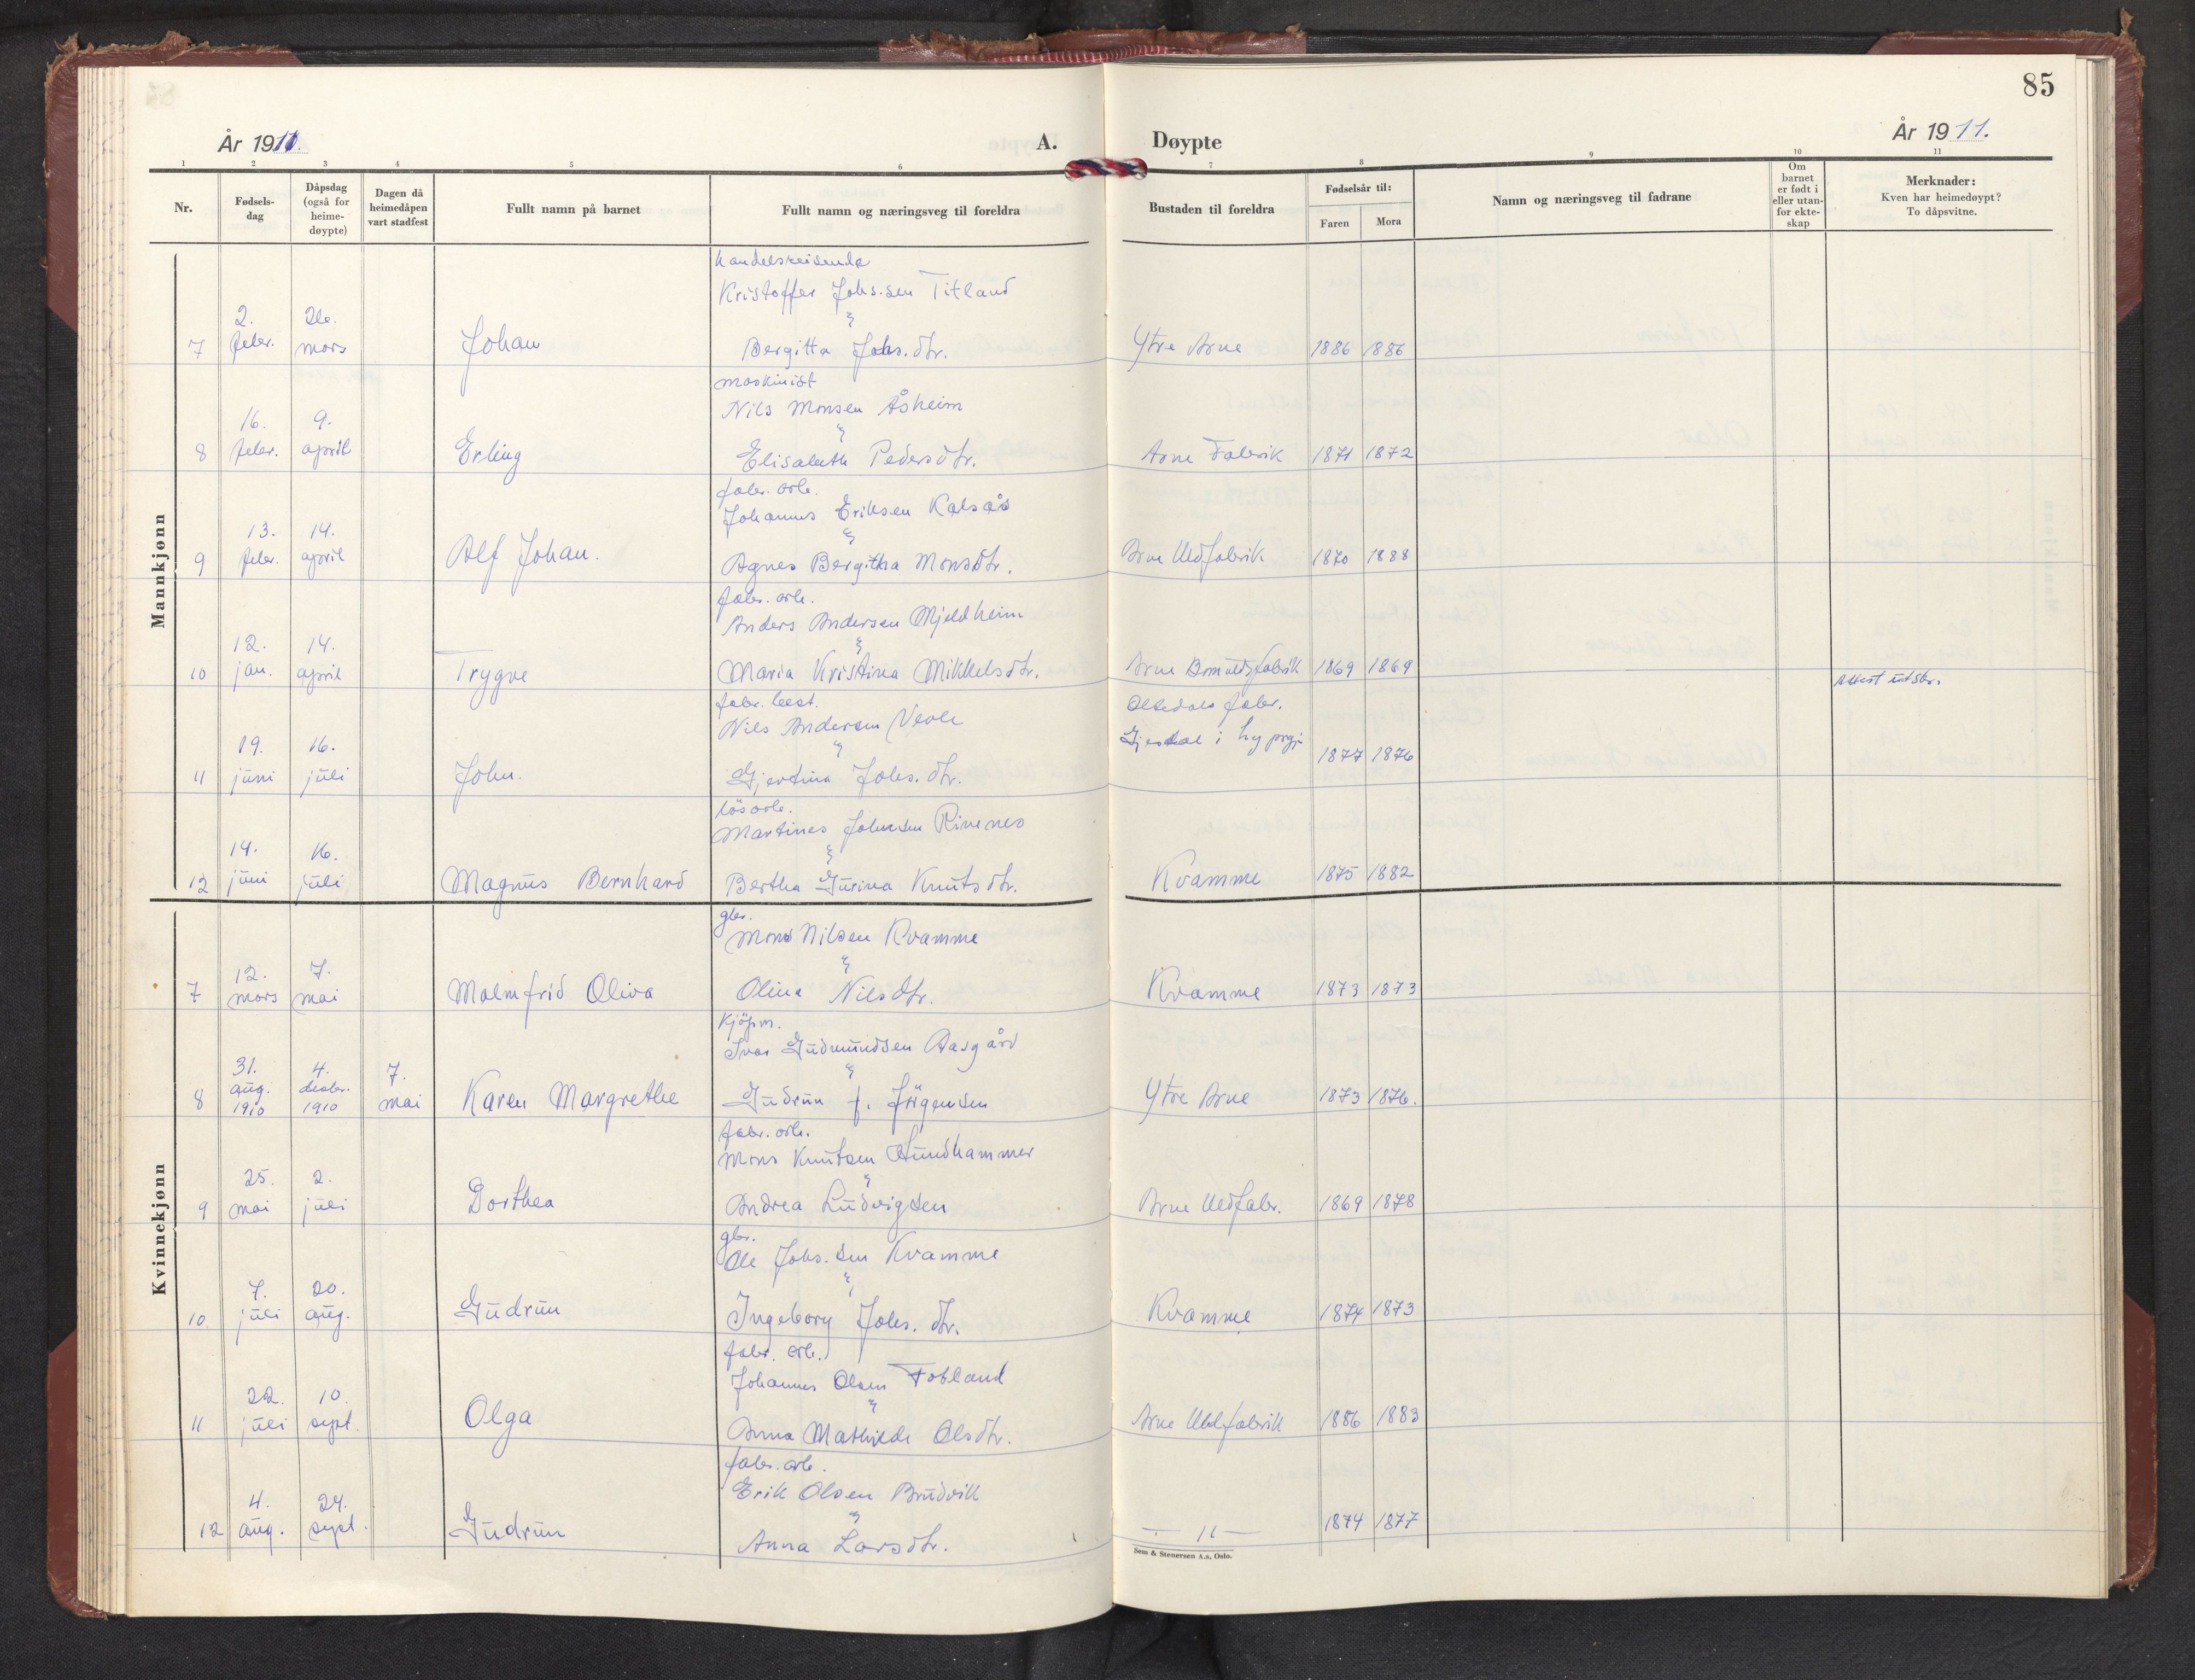 85
År 1911.
A.
Døypte
År 1911.
1 2 3 4 5 6 7 8 9 10 11
Nr.
Fødsels-
dag
Dåpsdag
(også for
heime-
døypte)
Dagen då
heimedåpen
vart stadfest
Fullt namn på barnet
Fullt namn og næringsveg til foreldra
Bustaden til foreldra
Fødselsår til:
Faren Mora
Namn og næringsveg til fadrane
Om
barnet
er født i
eller utan-
for ekte-
skap
Merknader:
Kven har heimedøypt?
To dåpsvitne.
Mannkjønn
handelsreisende
Kristoffer Johs.sen Titland
2. 26. &
7 febr. mars Johan Bergitta Johs.dtr. Ytre Arne 1886 1886
maskinist
Nils Monsen Åsheim
16. 9. &
8 febr. april Erling Elisabeth Pedersdtr. Arne Fabrik 1871 1872
fabr. arb.
Johannes Eriksen Kalsås
13. 14. &
9 febr. april Alf Johan. Agnes Bergitha Monsdtr. Arne Uldfabrik 1870 1888
fabr. arb.
Anders Andersen Mjeldheim
12. 14. &
10 jan. april Trygve Maria Kristina Mikkelsdtr. Arne Bomuldsfabrik 1869 1869
Attest utskr.
fabr. best. Oltedals fabr.
Nils Andersen Gjesdal i Ly prgj.
19. 16. & 1877 1876
11 juni juli John. Gjertina Johs.dtr.
lösarb.
Martines Johnsen Rivenes
14. 16. &
12 juni juli Magnus Bernhard Bertha Gurina Knutsdtr. Kvamme 1875 1882
Kvinnekjønn
gbr.
Mons Nilsen Kvamme
12. 7. &
7 mars mai Malmfrid Oliva Olina Nilsdtr. Kvamme 1873 1873
Kjöpm.
Ivar Gudmundsen Aasgård
31. 4. 7. &
8 aug. desbr. mai Karen Margrethe Gudrun f. Jörgensen Ytre Arne 1873 1876.
1910 1910
fabr. arb.
Mons Knutsen Hundhammer
25. 2. &
9 mai juli Dorthea Andrea Ludvigsen Arne Uldfabr. 1869 1878
gbr.
Ole Johs.sen Kvamme
7. 20. &
10 juli aug. Gudrun Ingeborg Johs.dtr. Kvamme 1874 1873
fabr. arb.
Johannes Olsen Totland
22. 10. &
11 juli sept. Olga Anna Mathilde Olsdtr. Arne Uldfabrik 1886 1883
fabr. arb.
Erik Olsen Brudvik
4. 24. &
12 aug. sept. Gudrun Anna Larsdtr. — 11 — 1874 1877
Sem & Stenersen A.s, Oslo.